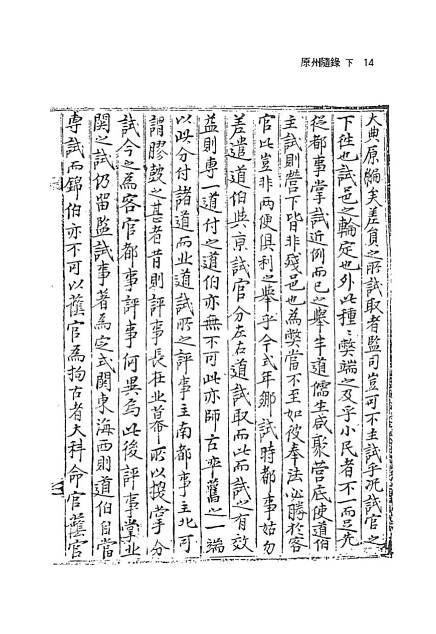 原州隨錄 下 14
大典原編夫差員之所試取者監司豈可不主試乎況試官之
下往也試邑之輪定也外此種〻弊端之及乎小民者不一而足先
從都事掌試近例而已之擧半道儒生咸聚營底使道伯
主試則營下皆非殘邑也為弊當不至如被奉法必勝於客
官此豈非兩便俱利之擧乎今式年鄕試時都事姑勿
差遣道伯與京試官分左右道試取而此而試之有效
益則專一道付之道伯亦無不可此亦師古舊之一端
以此分付諸道而北道試所之評事主南都事主北可
謂膠之甚者昔則評事長在北幕所以按掌分
試今之為客官都事評事何異焉此後評事掌北
關之試仍留監試事著為定式關東海西則道伯自當
專試而錦伯亦不可以蔭官為拘古者大科命官蔭官